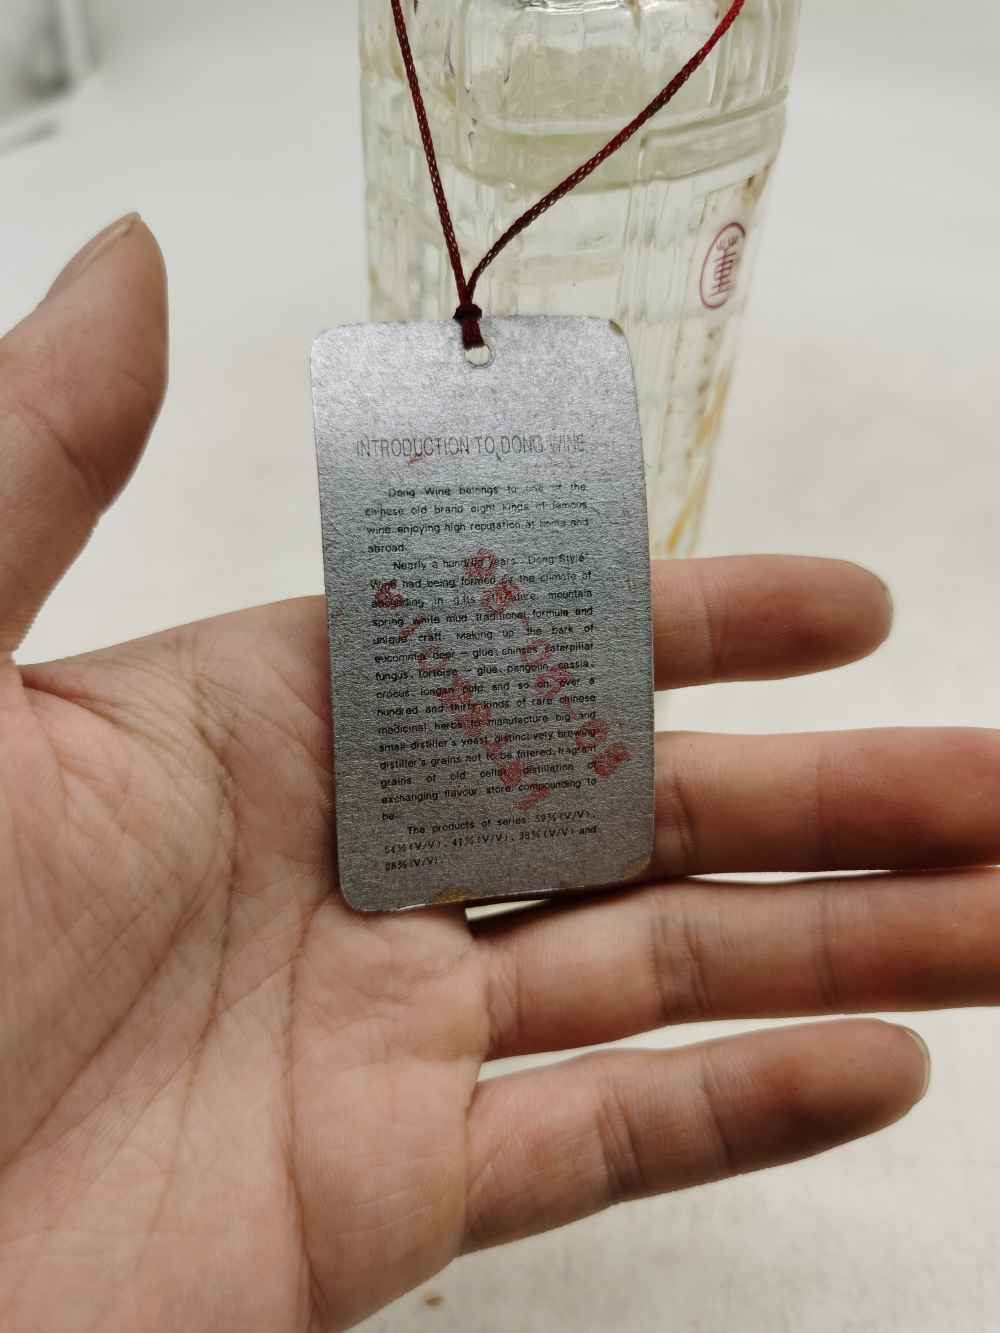 INTRODUCTION TO DONG WINE
Dong Wine belongs to one of the
chinese old brand eight kinds of famous
wine enjoying high reputation at home and
abroad.
Nearly a hundred years "Dong Style"
Wine had been formed by the climate of
in mountain
spring, white mud, traditional formula and
unique craft. Making up the bark of
eucommia, deer — glue, chinses caterpillar
fungus, tortoise — glue, pangolin, cassia,
crocus, longan pulp and so on, over a
hundred and thirty kinds of rare chinese
medicinal herbs to manufacture big and
small distiller's yeast, distinctively brewing
distiller's grains not to be filtered, fragrant
grains of old cellar distillation of
exchanging flavour store compounding to
be.
The products of series: 59%(V/V),
54%(V/V), 41%(V/V), 38%(V/V) and
28%(V/V).